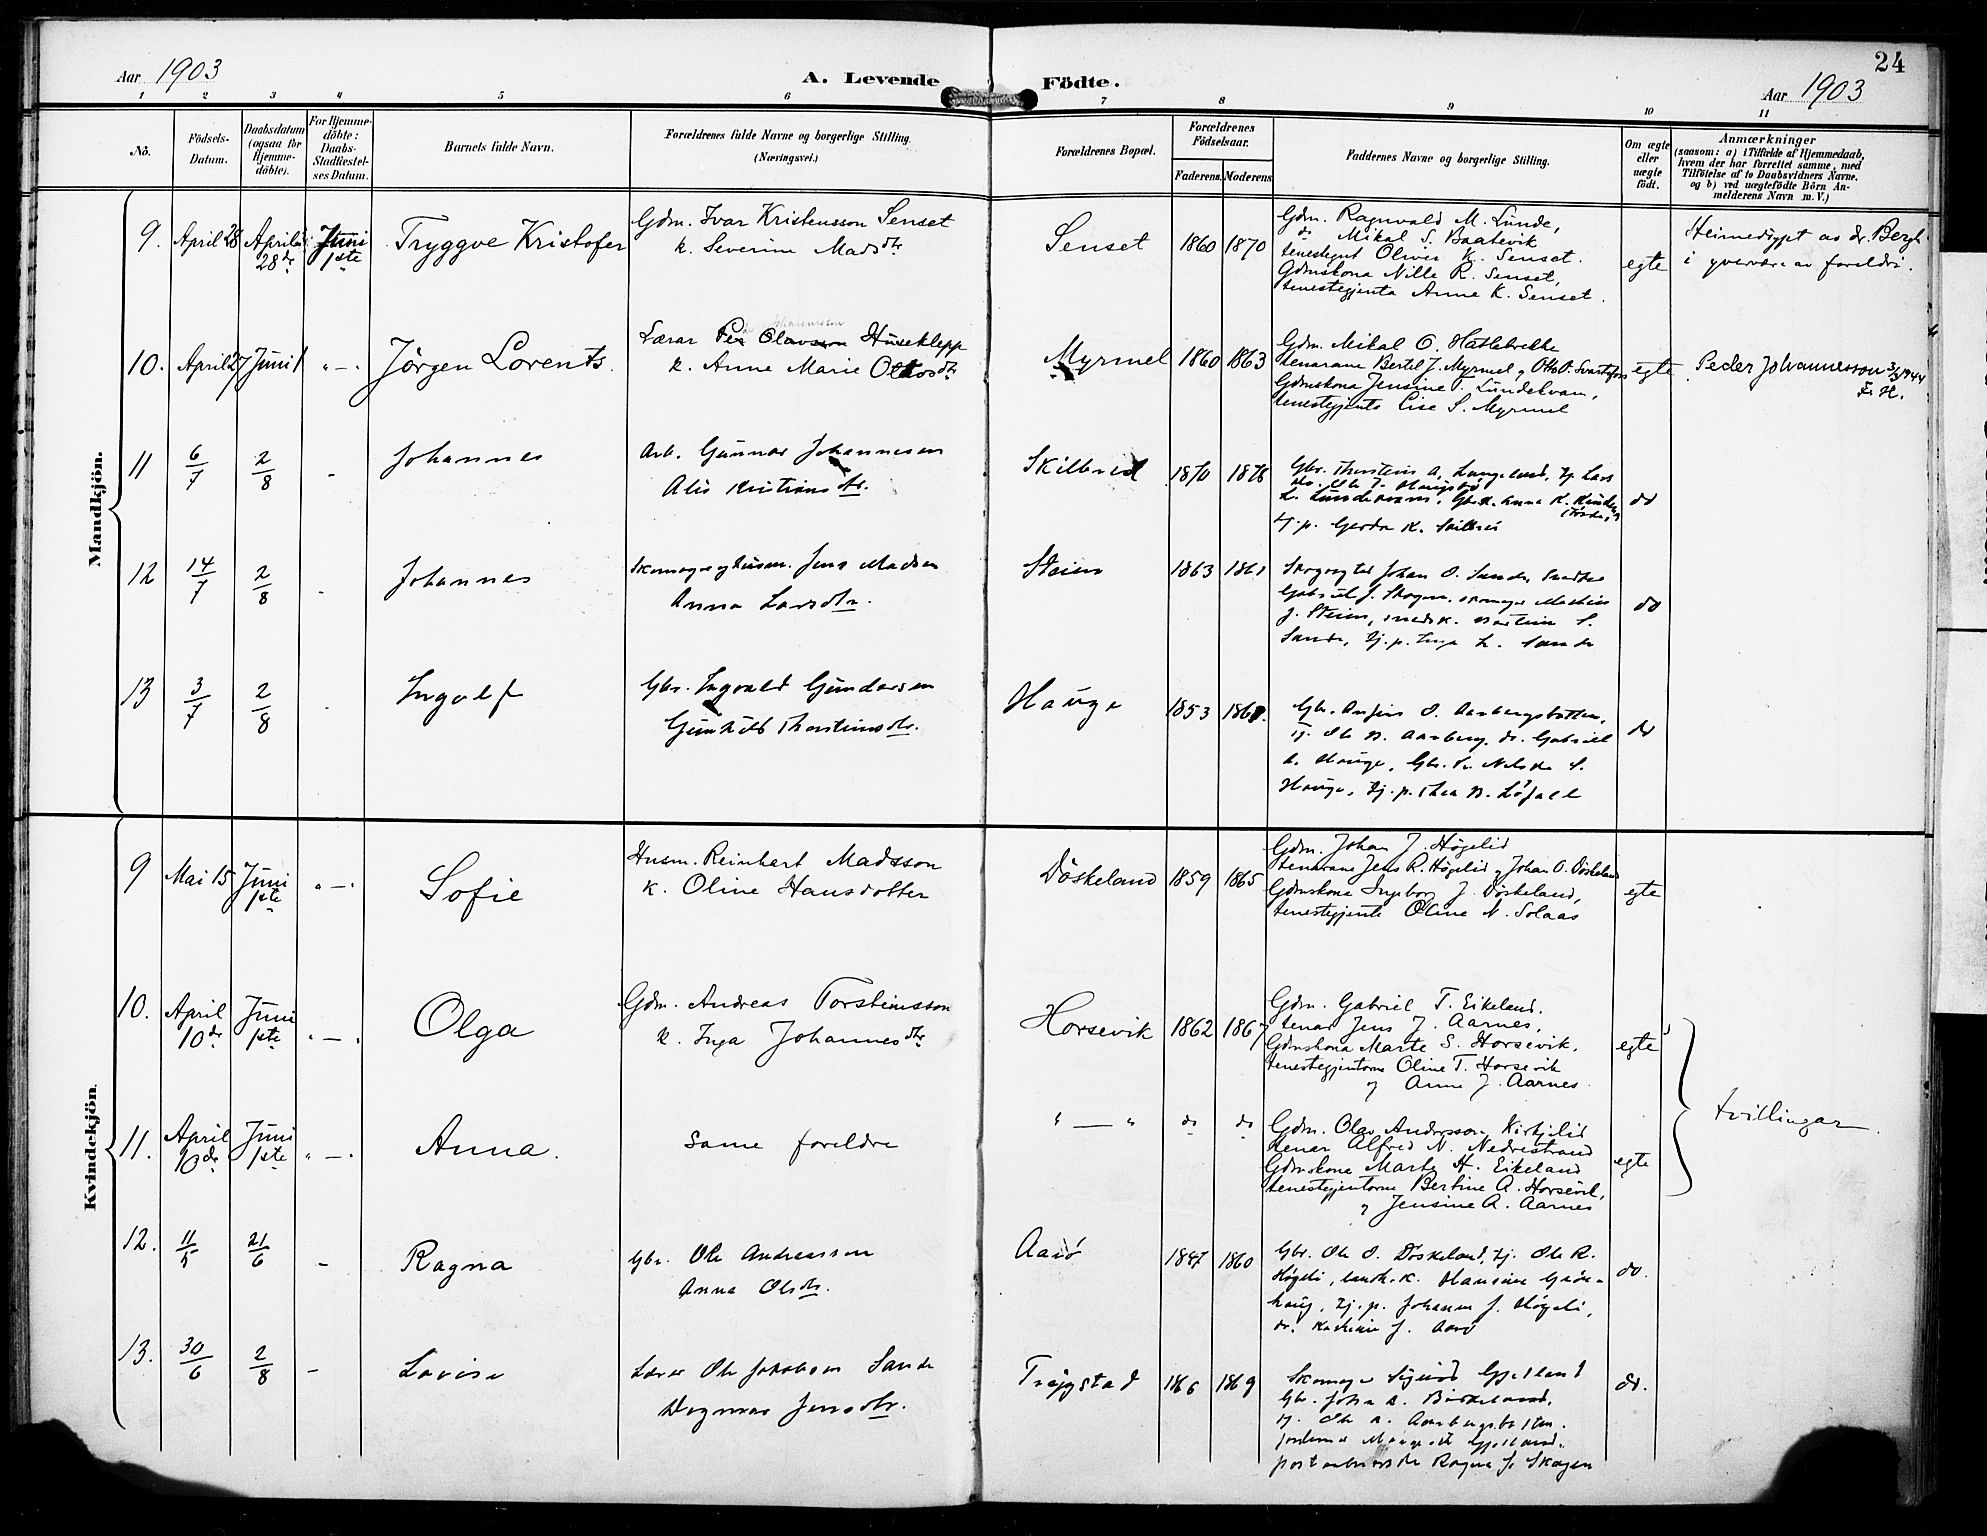 24
Aar 1903
A. Levende Födte.
Aar 1903
1 2 3 4 5 6 7 8 9 10 11
No.
Födsels-
Datum.
Daabsdatum
(ogsaa for
Hjemme-
döbte).
For Hjemme-
döbte:
Daabs-
Stadfæstel-
ses Datum.
Barnets fulde Navn.
Forældrenes fulde Navne og borgerlige Stilling
(Næringsvei.)
Forældrenes Bopæl.
Forældrenes
Födselsaar.
Faderens. Moderens
Faddernes Navne og borgerlige Stilling.
Om ægte
eller
uægte
födt.
Anmærkninger
(saasom: a) i Tilfælde af Hjemmedaab,
hvem der har forrettet samme, med
Tilföielse af to Daabsvidners Navne.
og b) ved uægtefödte Börn An-
melderens Navn m. V.)
Mandkjön.
9. April 28 April 28de Juni 1ste Tryggve Kristofer
Gdm. Ivar Kristensson Senset
k. Severine Madsdtr
Senset 1860 1870
Gdm. Ragnvald M. Lunde,
do Mikal S. Baatevik
tenestegut Oliver K. Senset.
Gdmskona Nille R. Senset,
tenestegjenta Anne K. Senset.
egte
Heimedöypt av dr. Bergh
i yvervære av foreldri.
10. April 27 Juni 1 " — " Jörgen Lorents.
Lærar Per Olavson Huseklepp
Johannesson
k. Anne Marie Olsdtr
Myrmel 1860 1863
Gdm. Mikal O. Hatlebrekke
tenarane Bertel J. Myrmel og Otto O. Svartefoss
Gdmskona Jensine T. Lundekvam,
tenestegjenta Lise S. Myrmel
egte
Peder Johannesson 3/3 1944
F. H.
11 6/7 2/8 - Johannes
Arb. Gunnar Johannesen
Alis Kristiansdtr.
Skilbred 1870 1878
Gbr. Thorstein A. Langeland, tj. Lars
L. Lundekvam, Gbrk. Anna K. Kinden,
tj. p. Gerda K. Skilbrei
do
12 14/7 2/8 - Johannes
Skomager og husm. Jens Madsen
Anna Larsdtr.
Steien 1863 1861
Skogvogter Johan O. Sande,
Gabriel J. Skogen, skomager Mathias
J. Steien, smedk. Martine S.
Sande, tj. p. Inga L. Sande
do
13 3/7 2/8 - Ingolf
Gbr. Ingvald Gundersen
Gunhild Thorsteinsdtr.
Hauge 1853 1861.
Gbr. Anfin O. Aasbergsbotten,
tj. Ole N. Aarberg, do. Gabriel
A. Hauge, Gbr. k. Nelsea S.
Hauge, tj. p. Thea N. Löfall
do
Kvindekjön.
9 Mai 15 Juni 1ste " — " Sofie
Husm. Reinhart Madsson
k. Oline Hansdotter
Döskeland 1859 1865
Gdm. Johan J. Högelid
tenarane Jens R. Högelid og Johan O. Döskeland
Gdmskona Ingeborg J. Döskeland,
tenestegjenta Oline N. Solaas
egte
10. April 10de Juni 1ste " — " Olga
Gdm. Andreas Torsteinsson
k. Inga Johannesdtr
Horsevik 1862 1867
Gdm. Gabriel T. Eikeland.
tenar Jens J. Aarnes,
Gdmskona Marte S. Horsevik.
tenestegjentorne Oline T. Horsevik
og Anne J. Aarnes.
egte
tvillingar
11. April 10de Juni 1ste " — " Anna.
Same foreldre
" — " do do
Gdm. Olav Andersson Kirkjelid
tenar Alfred N. Nedrestrand
Gdmskona Marte H. Eikeland
tenestegjentorne Bertine A. Horsevik,
og Jensine A. Aarnes
egte
12. 11/5 21/6 - Ragna
Gbr. Ole Andreassen
Anna Olsdtr.
Aarö 1847 1860
Gbr. Ole O. Döskeland, tj. Ole R.
Högeli, landh. k. Hansine Grön-
haug, tj. p. Johanne J. Högeli,
do. Kathrine J. Aarö
do.
13. 30/6 2/8 - Lovise
Lærer Ole Jakobsen Sande
Dagmar Jensdtr.
Trægstad 186 1869
Skomager Sigurd Gjelland
Gbr. Johan A. Birkeland,
tj. Ole A. Aasbergsbotten.
jordemor Margret Gjelland.
Ragna J. Skogen
do.